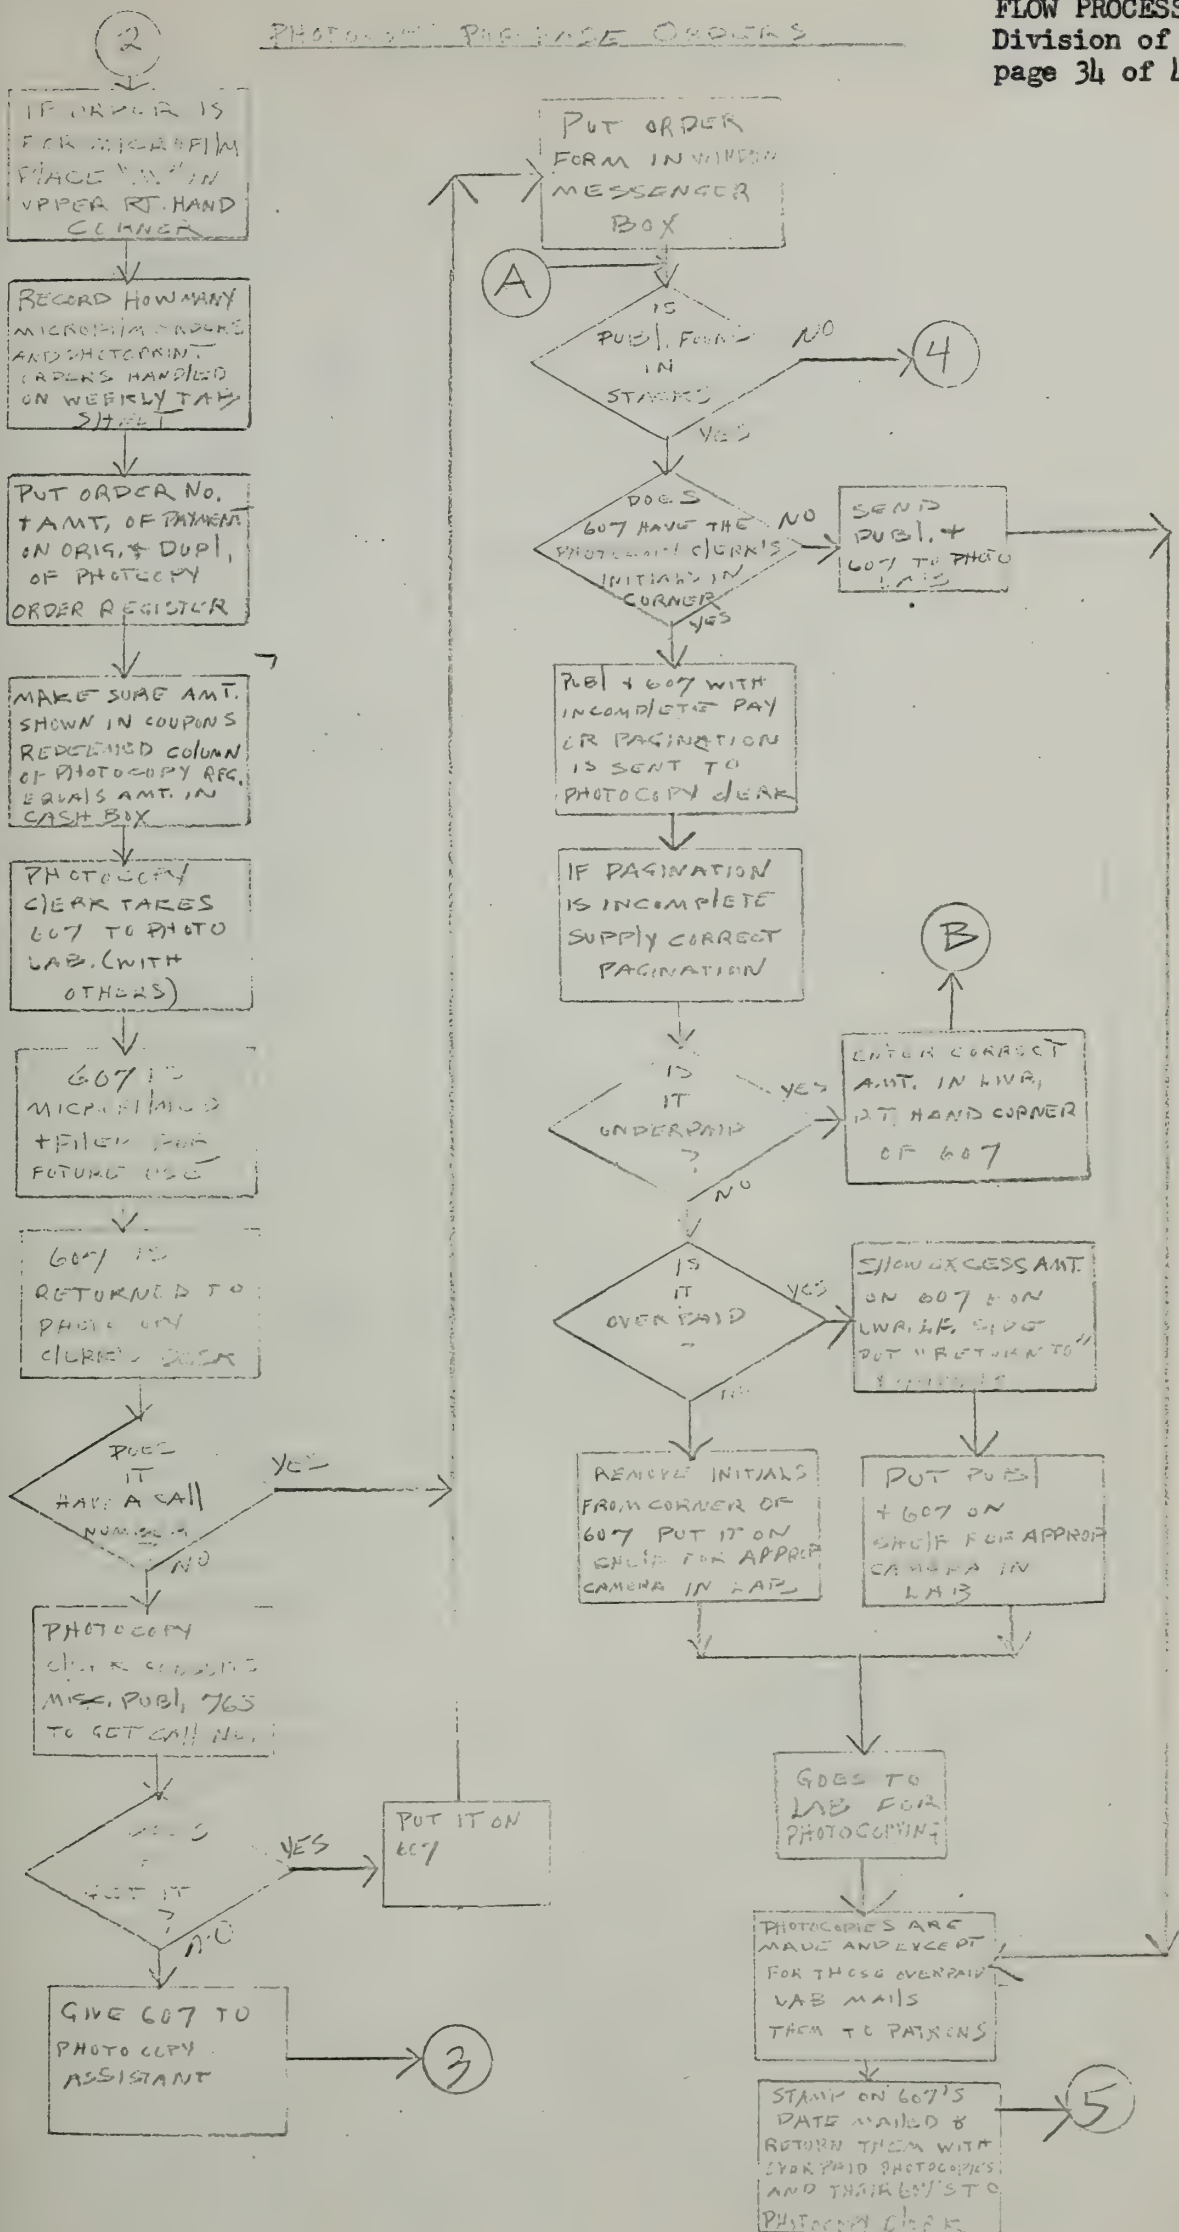 FLOW PROCESS
Division of
page 34 of 4
PHOTOCOPY PURCHASE ORDERS
2
IF ORDER IS
FOR MICROFILM
PLACE "M" IN
UPPER RT. HAND
CORNER
RECORD HOW MANY
MICROFILM ORDERS
AND PHOTOPRINT
ORDERS HANDLED
ON WEEKLY TAB
SHEET
PUT ORDER NO.
+ AMT. OF PAYMENT
ON ORIG. + DUPL.
OF PHOTOCOPY
ORDER REGISTER
MAKE SURE AMT.
SHOWN IN COUPONS
REDEEMED COLUMN
OF PHOTOCOPY REG.
EQUALS AMT. IN
CASH BOX
PHOTOCOPY
CLERK TAKES
607 TO PHOTO
LAB. (WITH
OTHERS)
607 IS
MICROFILMED
+ FILED FOR
FUTURE USE
607 IS
RETURNED TO
PHOTOCOPY
CLERK'S DESK
DOES
IT
HAVE A CALL
NUMBER
YES
NO
PHOTOCOPY
CLERK CONSULTS
MISC. PUBL. 765
TO GET CALL NO.
GOT IT
?
YES
NO
PUT IT ON
607
GIVE 607 TO
PHOTOCOPY
ASSISTANT
3
PUT ORDER
FORM IN WINDOW
MESSENGER
BOX
A
IS
PUBL. FOUND
IN
STACKS
NO
4
YES
DOES
607 HAVE THE
PHOTOCOPY CLERK'S
INITIALS IN
CORNER
NO
YES
SEND
PUBL. +
607 TO PHOTO
LAB
PUBL + 607 WITH
INCOMPLETE PAY
OR PAGINATION
IS SENT TO
PHOTOCOPY CLERK
IF PAGINATION
IS INCOMPLETE
SUPPLY CORRECT
PAGINATION
B
IS
IT
UNDERPAID
?
YES
NO
ENTER CORRECT
AMT. IN LWR,
RT. HAND CORNER
OF 607
IS
IT
OVERPAID
?
YES
NO
SHOW EXCESS AMT.
ON 607 & ON
LWR. LF. SIDE
PUT "RETURN TO"
REMOVE INITIALS
FROM CORNER OF
607 PUT IT ON
SHELF FOR APPROP
CAMERA IN LAB
PUT PUBL
+ 607 ON
SHELF FOR APPROP
CAMERA IN
LAB
GOES TO
LAB FOR
PHOTOCOPYING
PHOTOCOPIES ARE
MADE AND EXCEPT
FOR THOSE OVERPAID
LAB MAILS
THEM TO PATRONS
STAMP ON 607'S
DATE MAILED &
RETURN THEM WITH
OVERPAID PHOTOCOPIES
AND THEIR 607'S TO
PHOTOCOPY CLERK
5